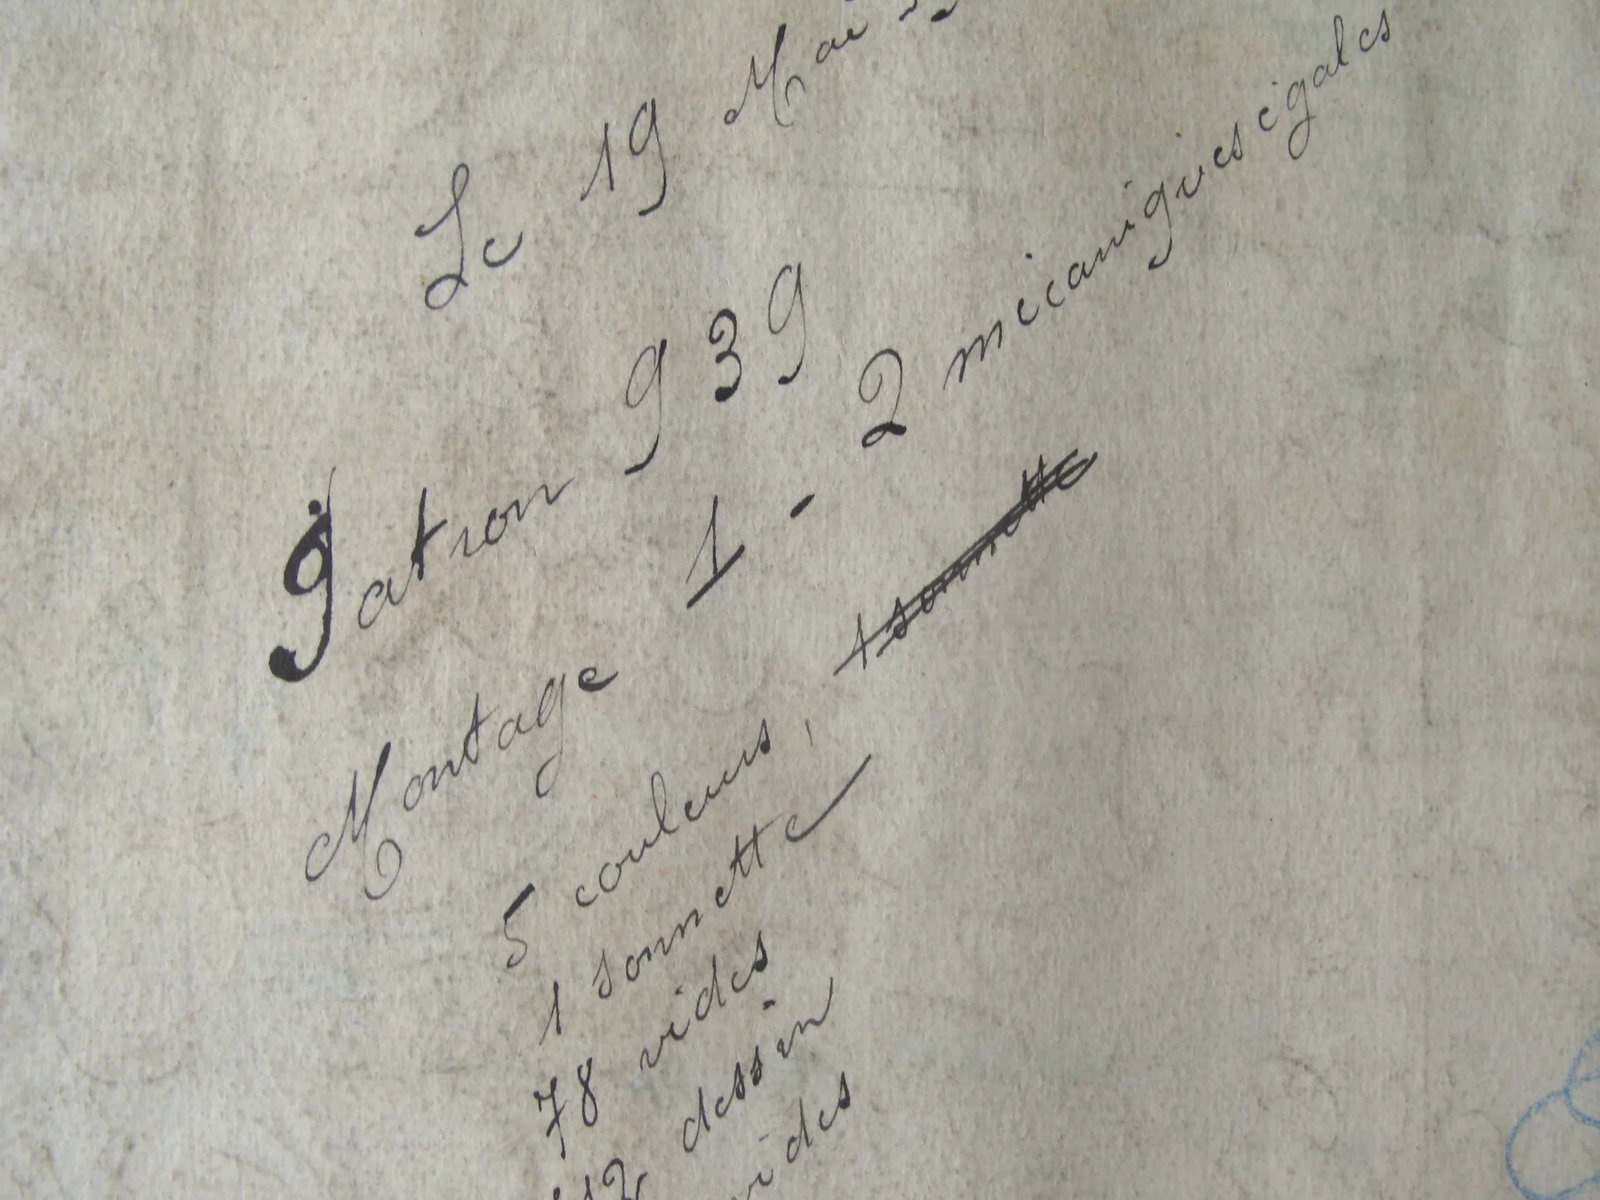 Le 19 Mai
Patron 939
Montage 1 - 2 mécaniques égales
5 couleurs, 1 sonnette
1 sonnette
78 vides
dessin
vides